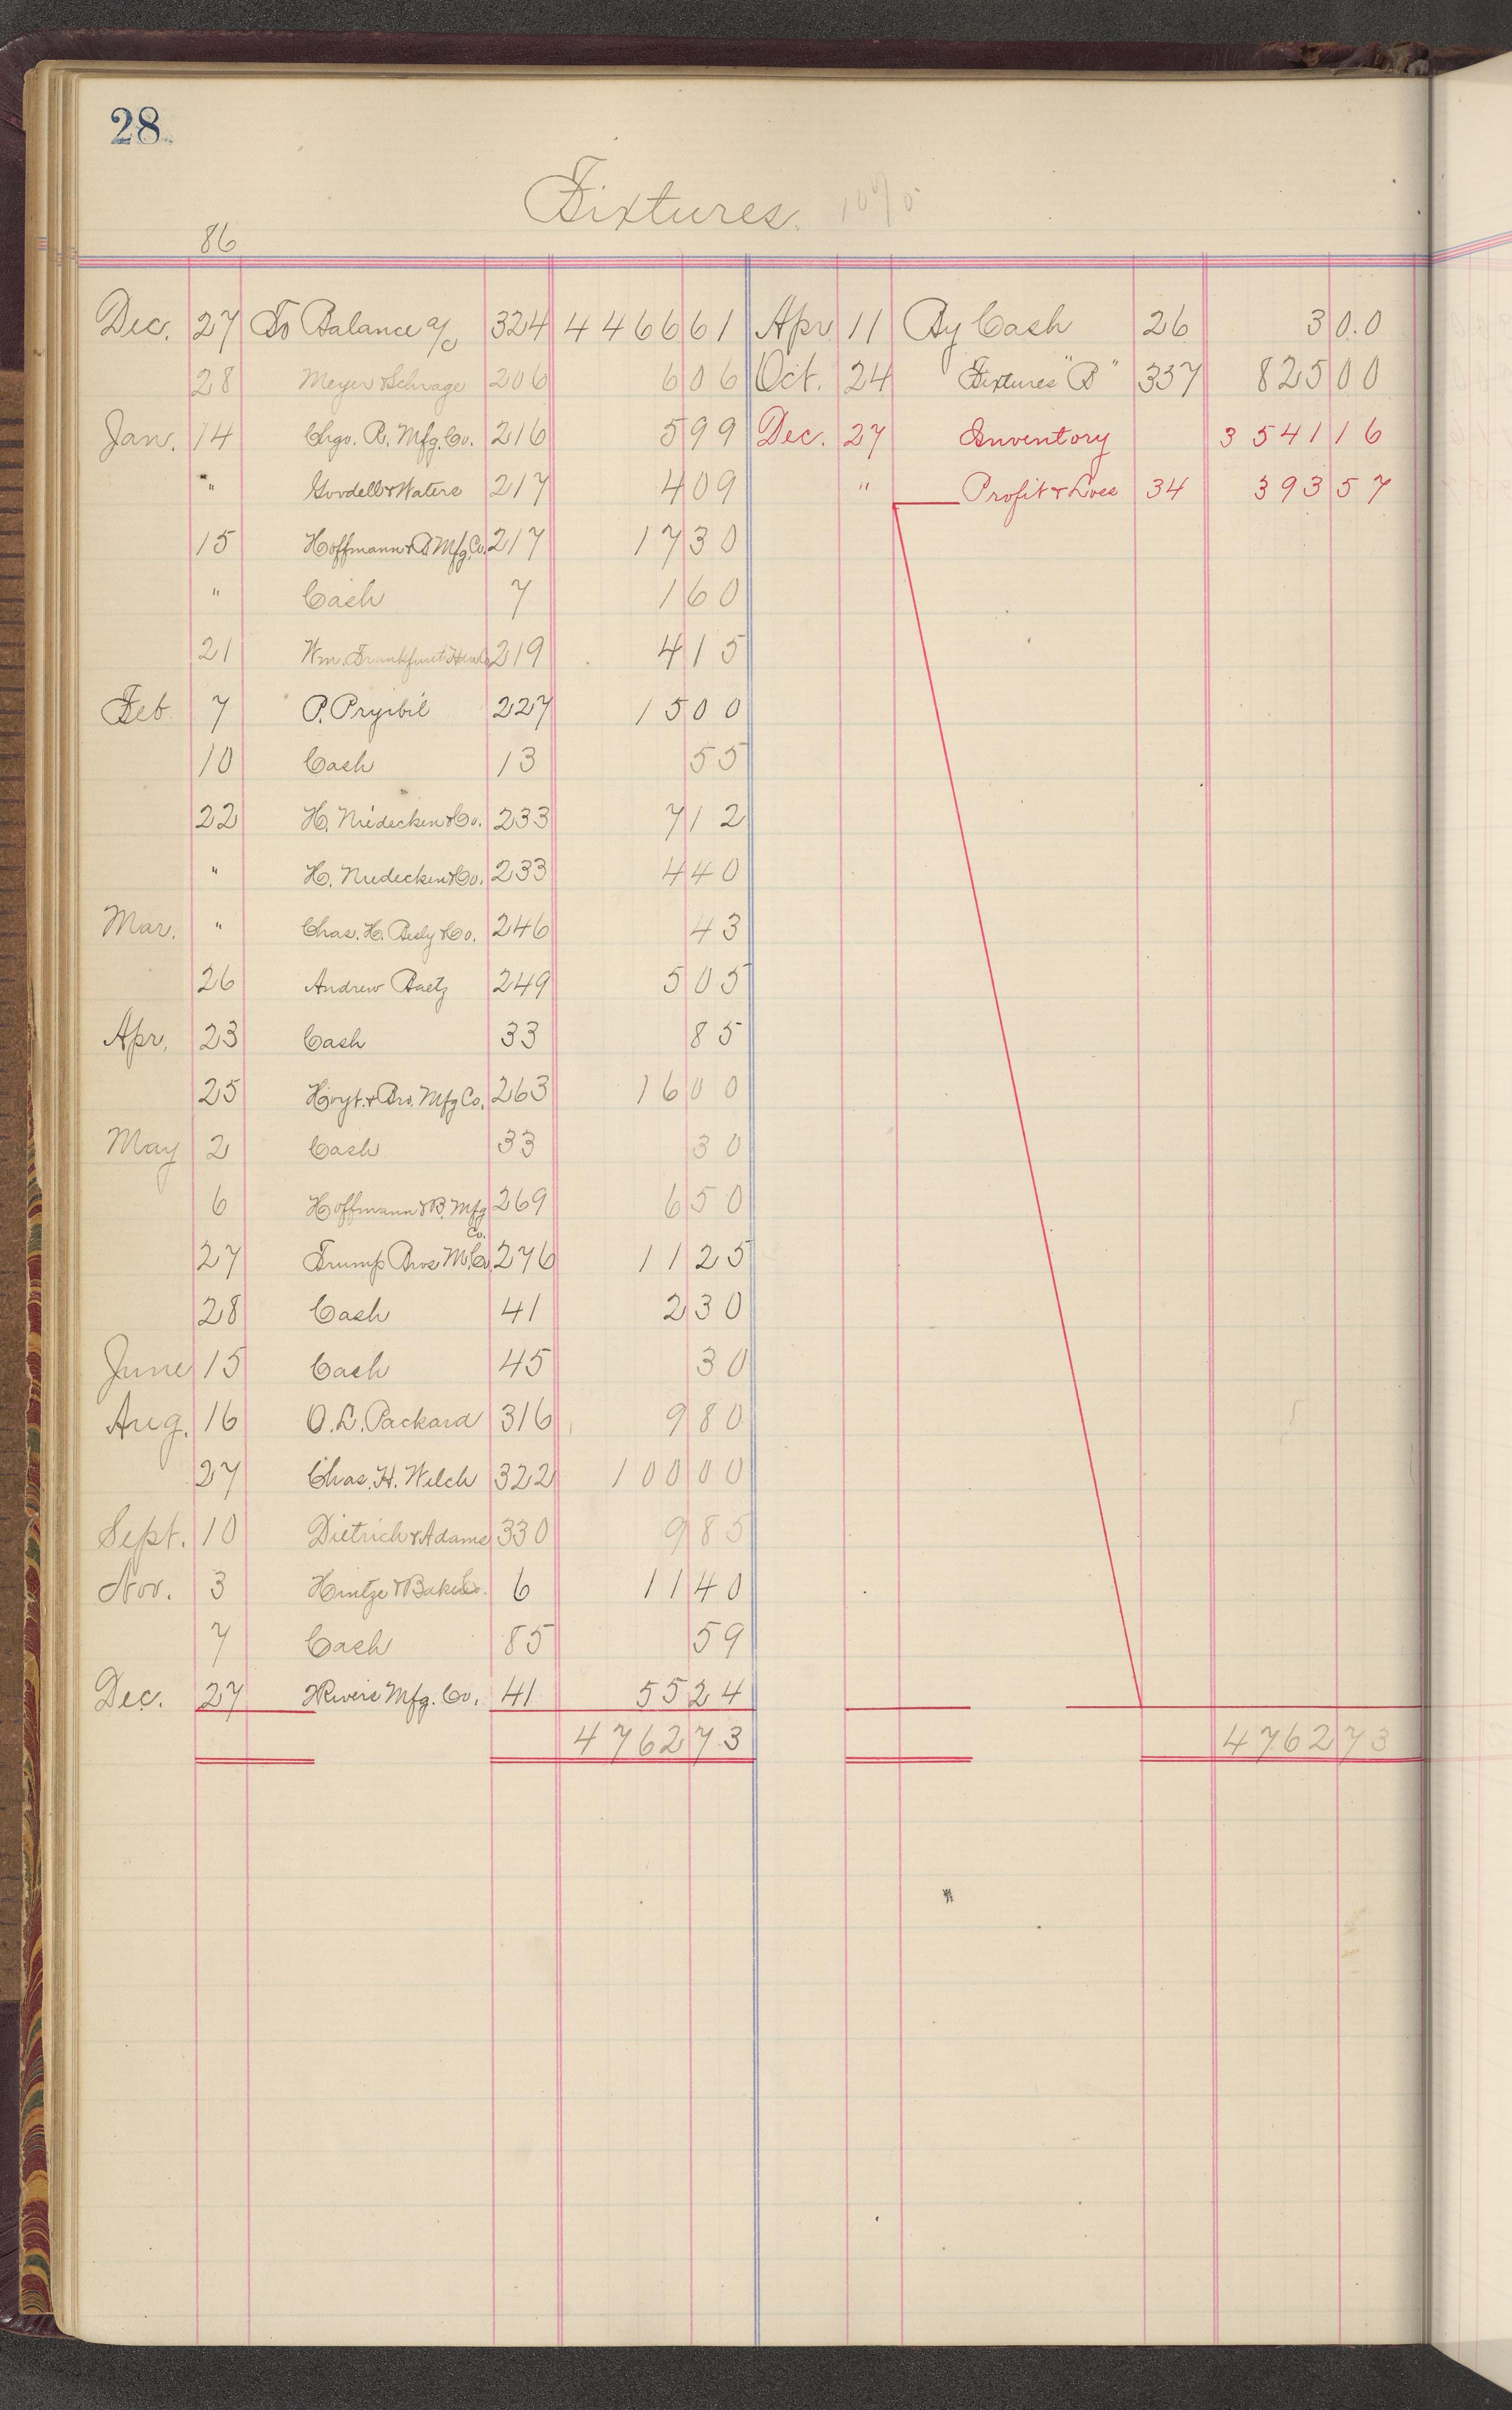 28
Fixtures. 10%
86
Dec. 27 To Balance a/c 324 4466 61 Apr. 11 By Cash 26 3 0.0
28 Meyer & Schrage 206 6 06 Oct. 24 Fixtures "B" 337 825 00
Jan. 14 Chgo. R. Mfg. Co. 216 5 99 Dec. 27 Inventory 3541 16
" Goodell & Waters 217 4 09 " Profit & Loss 34 393 57
15 Hoffmann & B Mfg. Co. 217 17 30
" Cash 7 1 60
21 Wm. Frankfurth 219 4 15
Feb. 7 P. Pryibil 227 15 00
10 Cash 13 55
22 H. Niedecken & Co. 233 7 12
" H. Niedecken & Co. 233 4 40
Mar. " Chas. H. Besly & Co. 246 43
26 Andrew Baetz 249 5 05
Apr. 23 Cash 33 85
25 Hoyt. & Bro. Mfg Co. 263 16 00
May 2 Cash 33 30
6 Hoffmann & B. Mfg Co. 269 6 50
27 Trump Bros M. Co. 276 11 25
28 Cash 41 2 30
June 15 Cash 45 30
Aug. 16 O. L. Packard 316 9 80
27 Chas. H. Welch 322 100 00
Sept. 10 Dietrich & Adams 330 9 85
Nov. 3 Hintze & Baker Co. 6 11 40
7 Cash 85 59
Dec. 27 Mfg. Co. 41 55 24
4762 73 4762 73